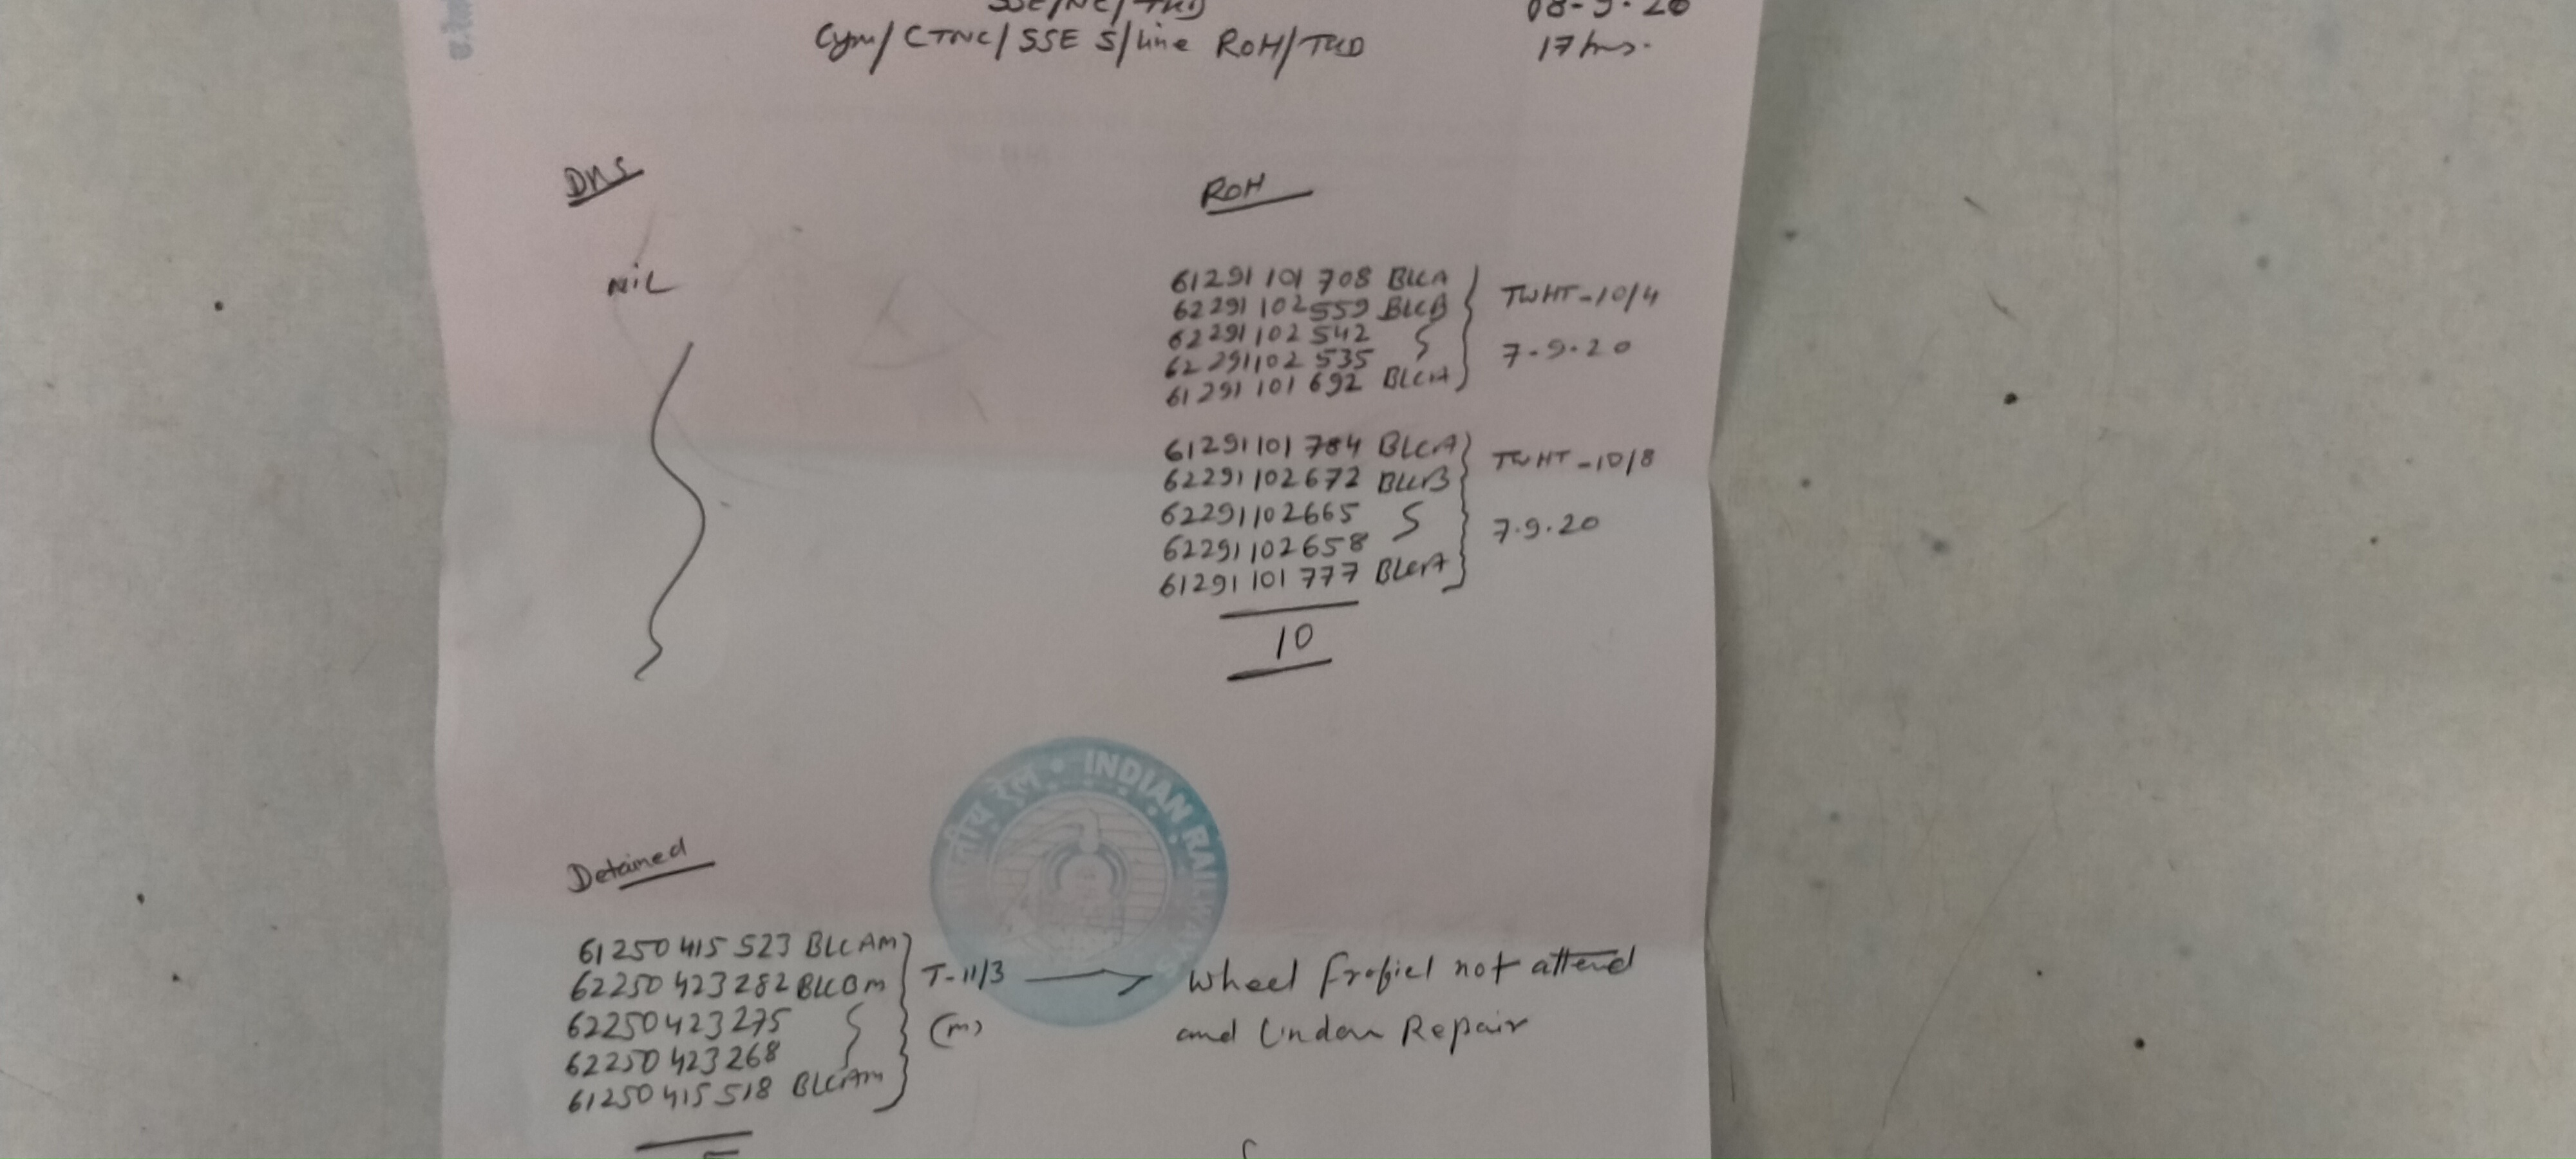 SSE/NC/TKD
08-9-20
Cym/CTNC/SSE S/line ROH/TKD
17 hrs.
DNS
NiL
ROH
61291101708 BLCA
62291102559 BLCB
62291102542
62291102535
61291101692 BLCA
TWHT-10/4
7-9-20
61291101784 BLCA
62291102672 BLCB
62291102665
62291102658
61291101777 BLCA
TWHT-10/8
7.9.20
10
भारतीय रेल • INDIAN RAILWAYS
Detained
61250415523 BLCAM
62250423282 BLCBM
62250423275
62250423268
61250415518 BLCAM
T-11/3
(m)
Wheel Frofiel not attend
and Under Repair